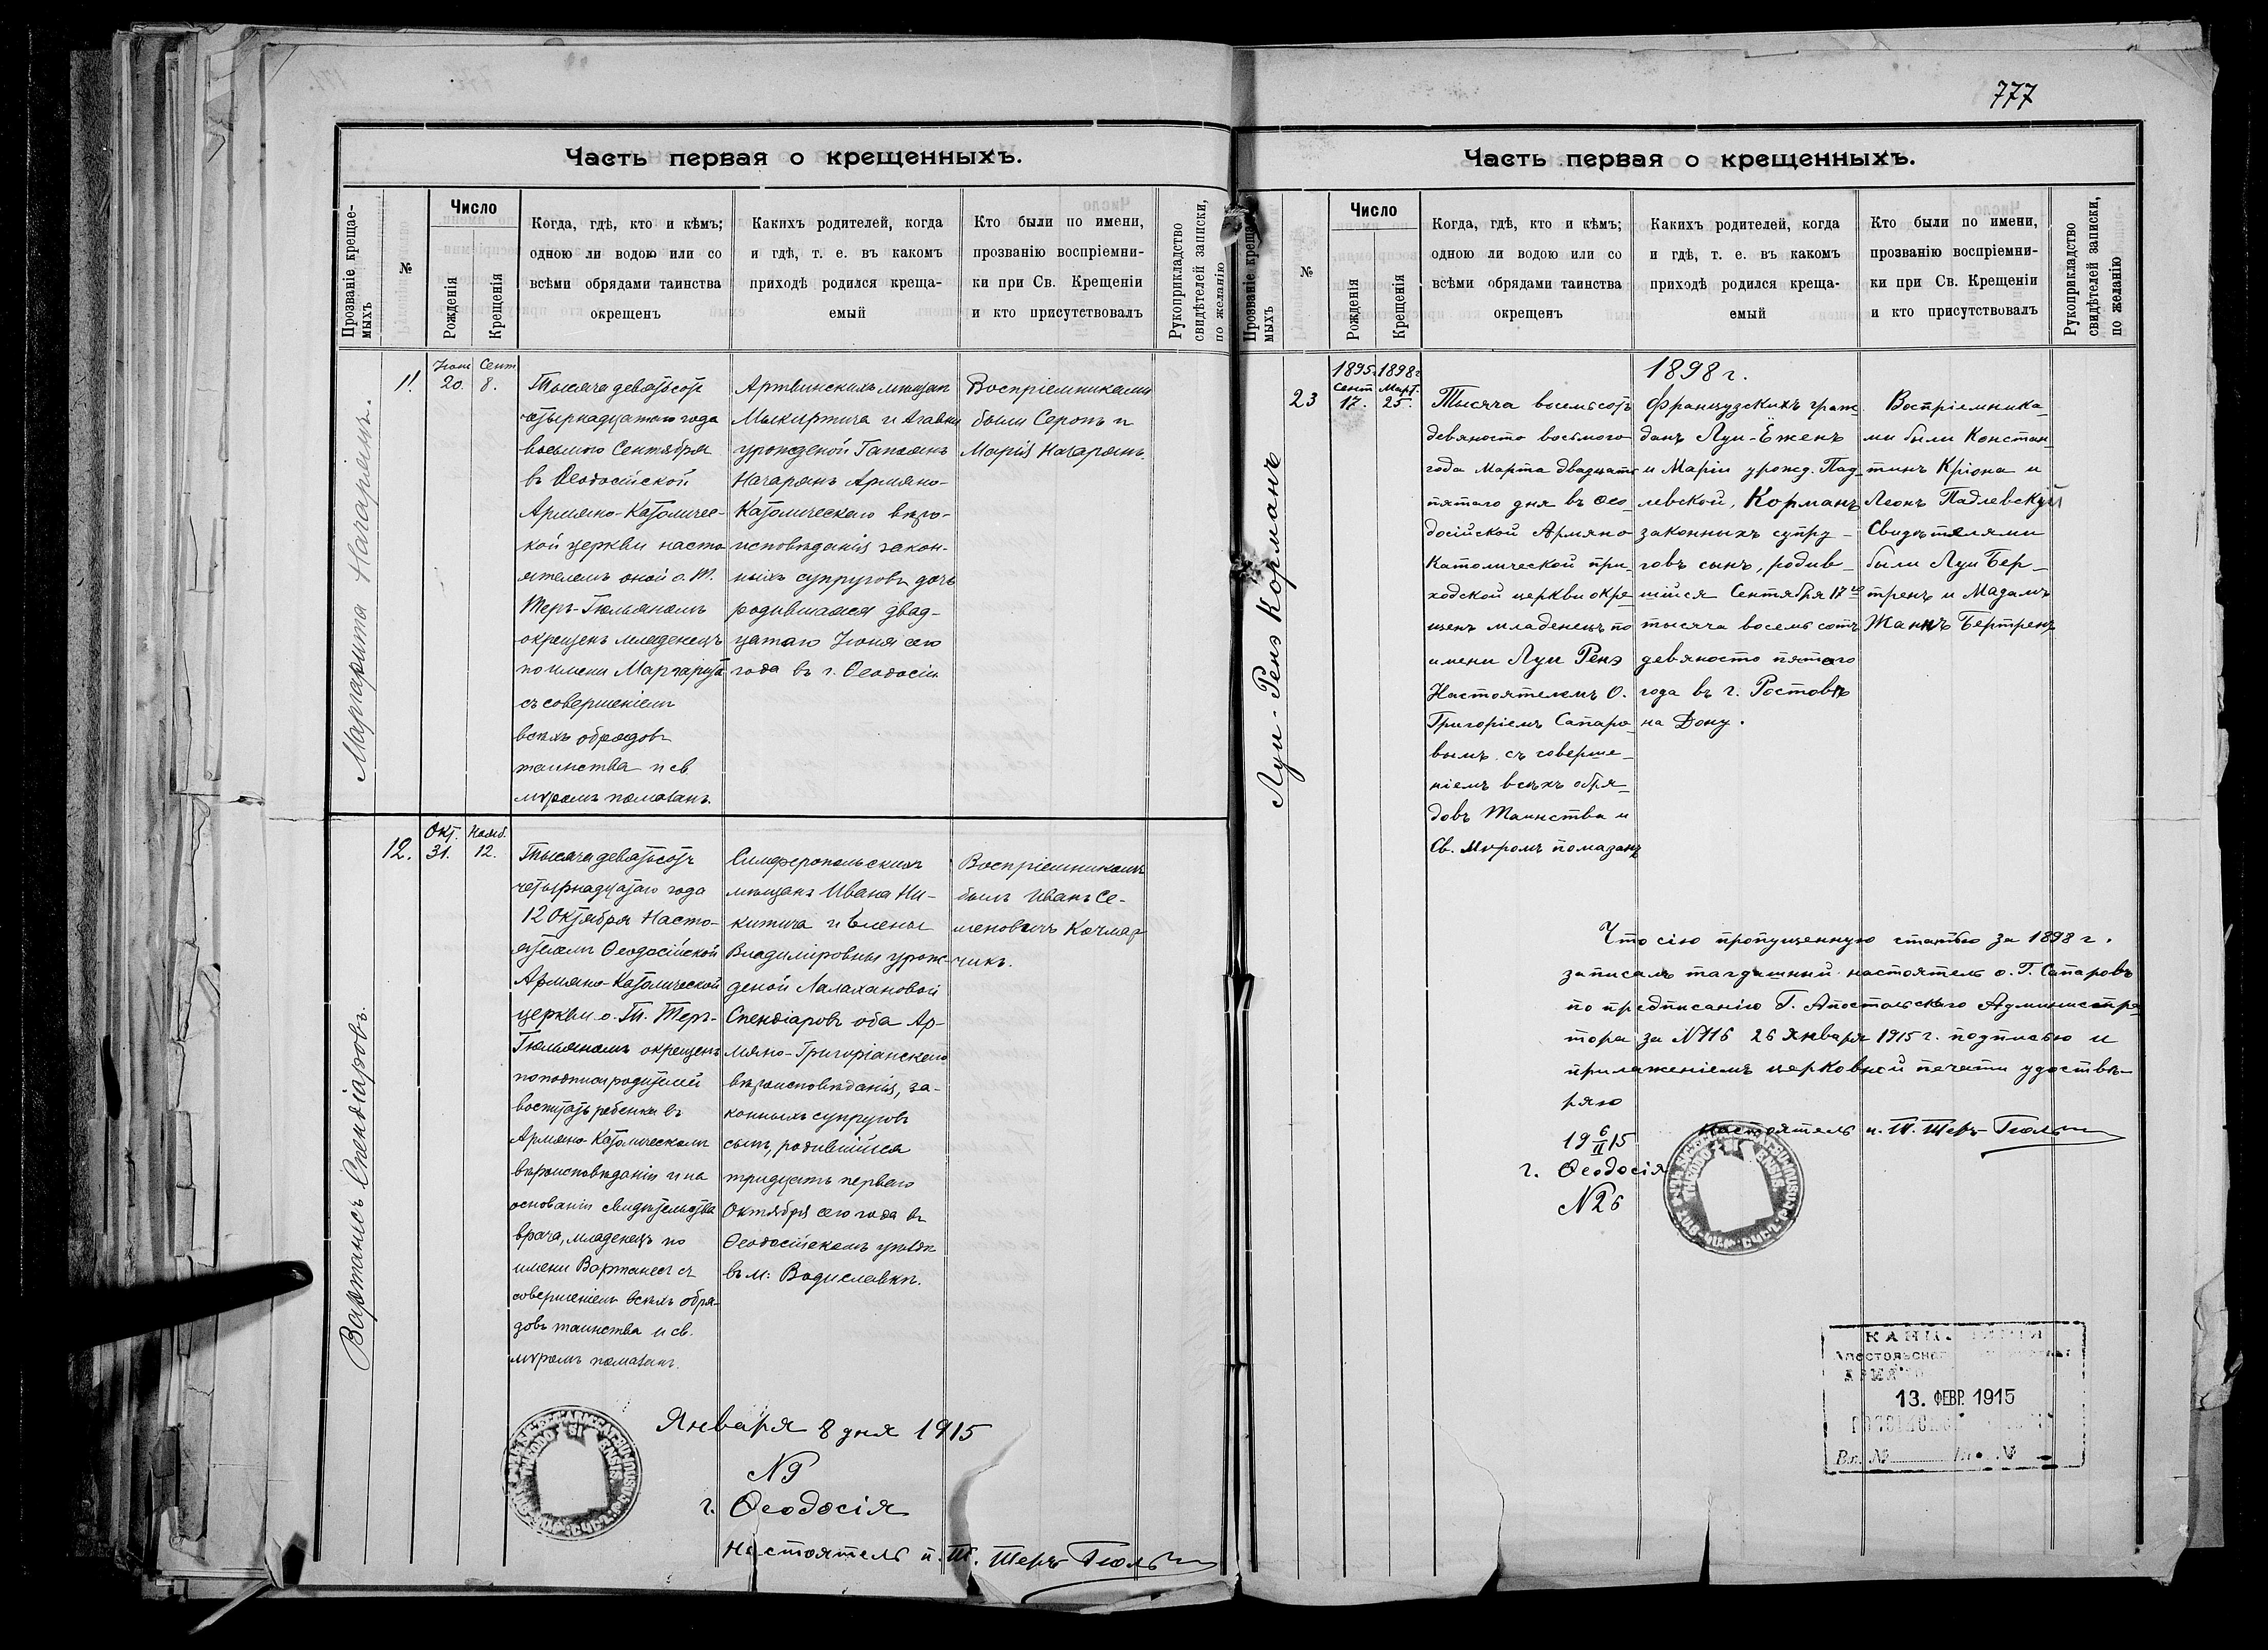 777
Часть первая о крещенныхъ.
Прозваніе крещае-
мыхъ
№
Число
Рожденія
Крещенія
Когда, гдѣ, кто и кѣмъ;
одною ли водою или со
всѣми обрядами таинства
окрещенъ
Какихъ родителей, когда
и гдѣ, т. е. въ какомъ
приходѣ родился креща-
емый
Кто были по имени,
прозванію воспріемни-
ки при Св. Крещеніи
и кто присутствовалъ
Рукоприкладство
свидѣтелей записки,
по желанію
Маргарита Начарянцъ.
11.
20.
Сент
8.
Тысяча девятьсотъ
четырнадцатаго года
восьмого Сентября
въ Ѳеодосійской
Армяно-Католичес-
кой церкви насто
ятелемъ оной о. Т.
Теръ-Гюльяномъ
окрещенъ младенецъ
по имени Маргарита
съ совершеніемъ
всѣхъ обрядовъ
таинства и св.
мѵромъ помазанъ.
Артвинскихъ мѣщан
Мыкиртича и Агавни
урожденой
Начарянъ Армяно-
Католическаго вѣро-
исповѣданія закон-
ныхъ супруговъ дочь
родившаяся двад-
цатаго Іюня сего
года въ г. Ѳеодосіи
Воспріемниками
были Серопъ и
Марія Начарянъ.
Вартанисъ Спендіаровъ.
12.
Окт.
31.
Нояб.
12.
Тысяча девятьсотъ
четырнадцатаго года
12 Октября Насто-
ятелемъ Ѳеодосійской
Армяно-Католической
церкви о. Т. Теръ-
Гюльяномъ окрещенъ
по подписи родителей
воспитать ребенка въ
Армяно-Католическомъ
вѣроисповѣданіи и на
основаніи свидѣтельства
врача, младенецъ по
имени Вартанесъ съ
совершеніемъ всѣхъ обря-
довъ таинства и св.
мѵромъ помазанъ.
Симферопольскихъ
мѣщанъ Ивана Ни-
китича и Елены
Владиміровны урож-
деной Лалахановой
Спендіаровъ оба Ар-
мяно-Григоріанскаго
вѣроисповѣданія, за-
конныхъ супруговъ
сынъ, родившійся
тридцать перваго
Октября сего года въ
Ѳеодосійскомъ уѣздѣ
въ м. Водиславкѣ.
Воспріемникомъ
былъ Иванъ Се-
меновичъ Качмар
чикъ.
Января 8 дня 1915
№ 9
г. Ѳеодосія
Настоятель п. Т. Теръ Гюль
Часть первая о крещенныхъ.
Прозваніе крещае-
мыхъ
№
Число
Рожденія
Крещенія
Когда, гдѣ, кто и кѣмъ;
одною ли водою или со
всѣми обрядами таинства
окрещенъ
Какихъ родителей, когда
и гдѣ, т. е. въ какомъ
приходѣ родился креща-
емый
Кто были по имени,
прозванію воспріемни-
ки при Св. Крещеніи
и кто присутствовалъ
Рукоприкладство
свидѣтелей записки,
по желанію
Луи-Ренэ Корманъ
23
1895г
Сент
17.
1898г
Март.
25.
1898 г.
Тысяча восемьсотъ
девяносто восьмого
года Марта двадцать
пятаго дня въ Ѳео
досійской Армяно
Католической при-
ходской церкви окре-
щенъ младенецъ по
имени Луи Ренэ
Настоятелемъ О.
Григоріемъ Сапаро-
вымъ съ соверше-
ніемъ всѣхъ обря-
довъ Таинства и
Св. Мѵромъ помазанъ
Французскихъ граж-
данъ Луи-Еженъ
и Маріи урожд. Пад-
левской, Корманъ
законныхъ супру-
говъ сынъ, родив-
шійся Сентября 17го
тысяча восемь сотъ
девяносто пятаго
года въ г. Ростовѣ
на Дону.
Воспріемника-
ми были Констан-
тинъ Кріона и
Леонъ Падлевскій
Свидѣтелями
были Луи Бер-
тренъ и Мадамъ
Жаннъ Бертренъ
Что сію пропущенную статью за 1898 г.
записалъ тагдашний настоятель о. Г. Сапаровъ
по предписанію Г. Апостольскаго Администра-
тора за № 116 26 Января 1915 г. подписью и
приложеніемъ церковной печати удоствѣ-
ряю
19 6/II 15
г. Ѳеодосія
№ 26
Настоятель п. Т. Теръ-Гюль
13. ФЕВР. 1915
Вх. №